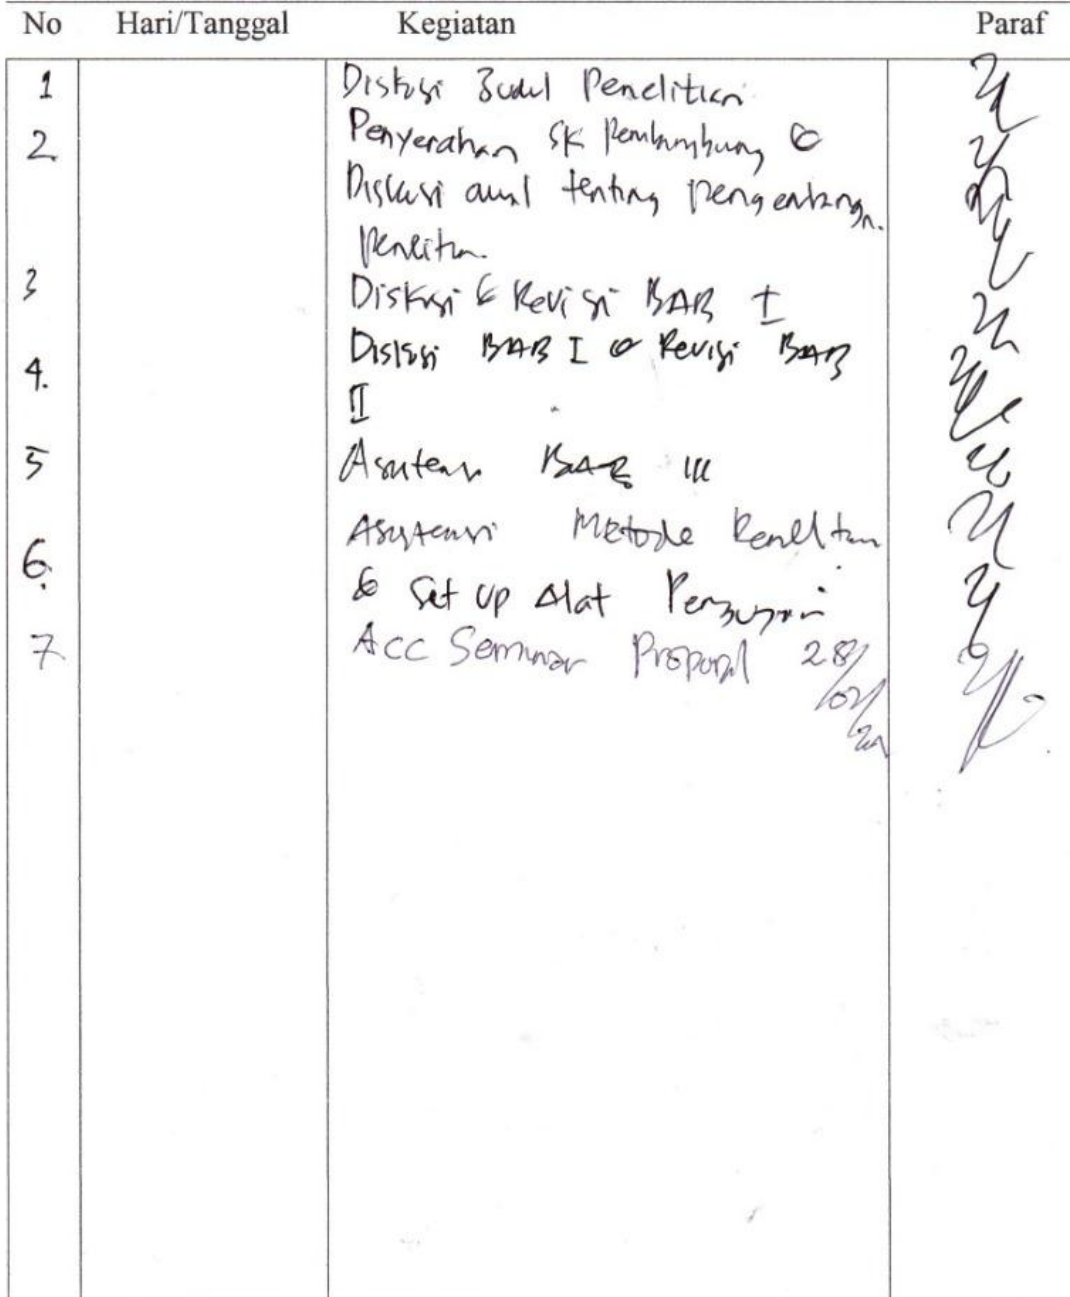 No Hari/Tanggal Kegiatan Paraf
1 Diskusi Judul Penelitian
2. Penyerahan SK Pembimbing &
Diskusi awal tentang pengembangn.
Penelitn.
3 Diskusi & Revisi BAB I
4. Diskusi BAB I & Revisi BAB
II
5 Asistensi BAB III
6. Asistensi Metode Penelitian
& Set up Alat Pengujian
7. Acc Seminar Proposal 28/02/